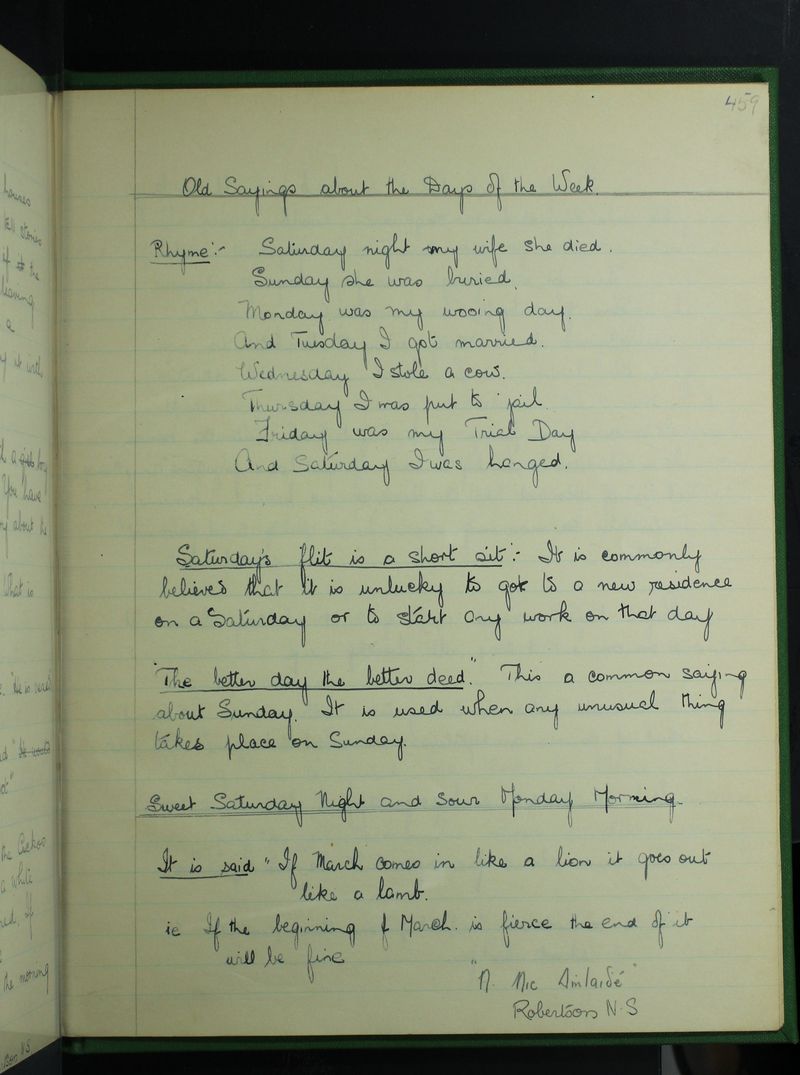 459
Old Sayings about the Days of the Week.
Rhyme:- Saturday night my wife she died.
Sunday she was buried.
Monday was my wooing day.
And Tuesday I got married.
Wednesday I stole a cow.
Thursday I was put to jail
Friday was my Trial Day
And Saturday I was hanged.
Saturday's flit is a short sit:- It is commonly
believed that it is unlucky to got to a new residence
on a Saturday or to start any work on that day
"The better day the better deed." This a common saying
about Sunday. It is used when any unusual thing
takes place on Sunday.
Sweet Saturday Night and Sour Monday Morning.
It is said "If March comes in like a lion it goes out
like a lamb.
ie If the beginning of March. is fierce the end of it
will be fine "
N. Nic
Robertson N.S
houses
tell stories
if the
leaving
a
You have
about the
What is
the Cuckoo
a while
the morning
N.S